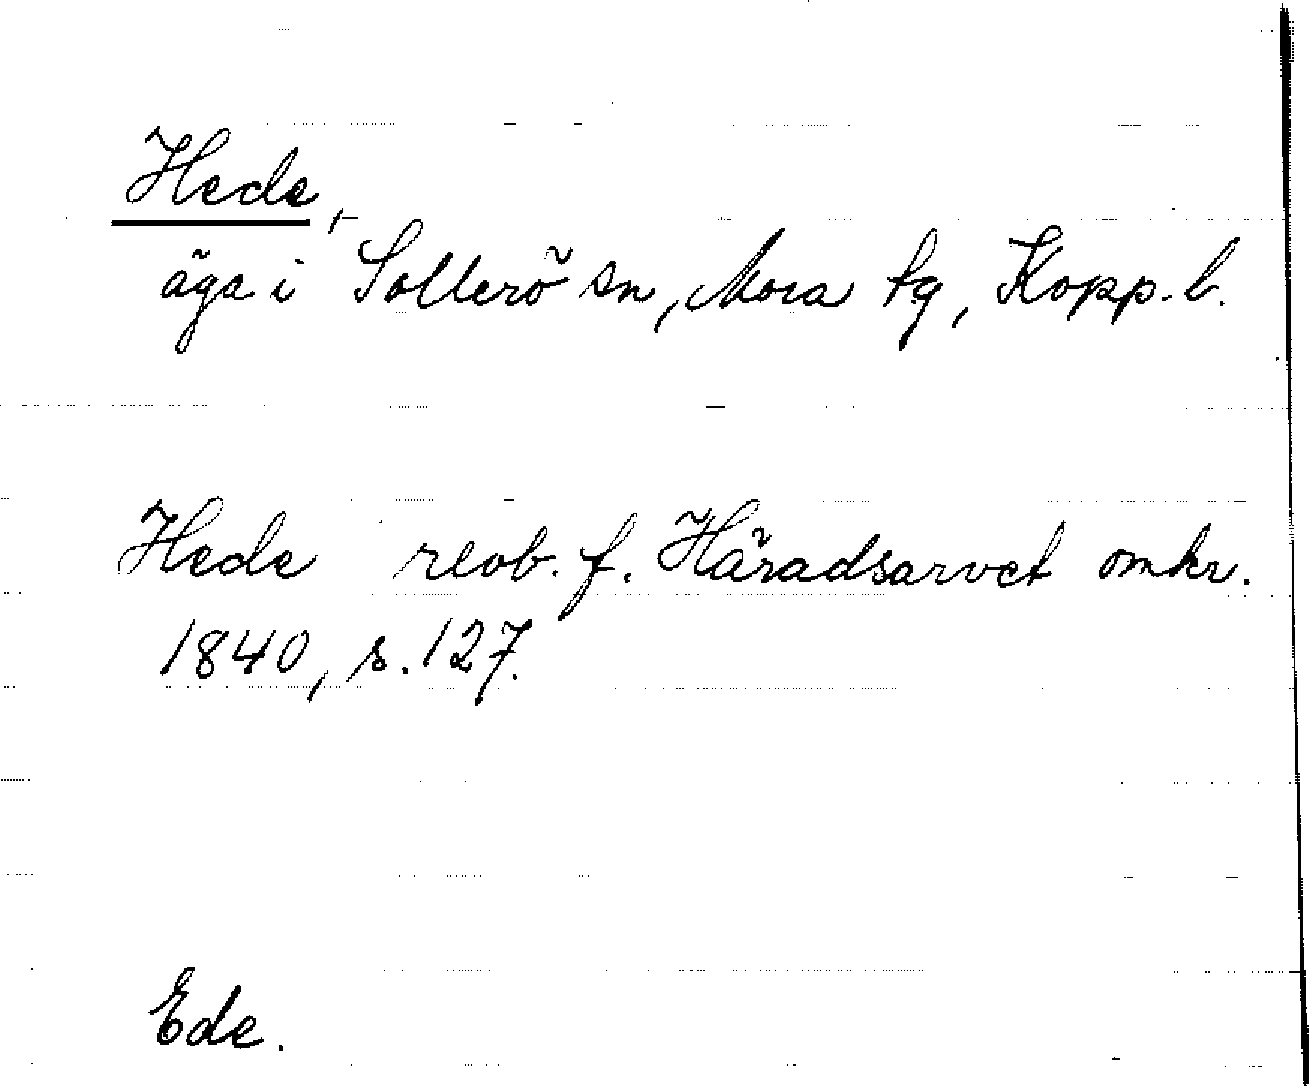 Hede,
äga i Sollerö sn, Mora tg, Kopp. l.
Hede revb. f. Häradsarvet omkr.
1840, s. 127.
Ede.